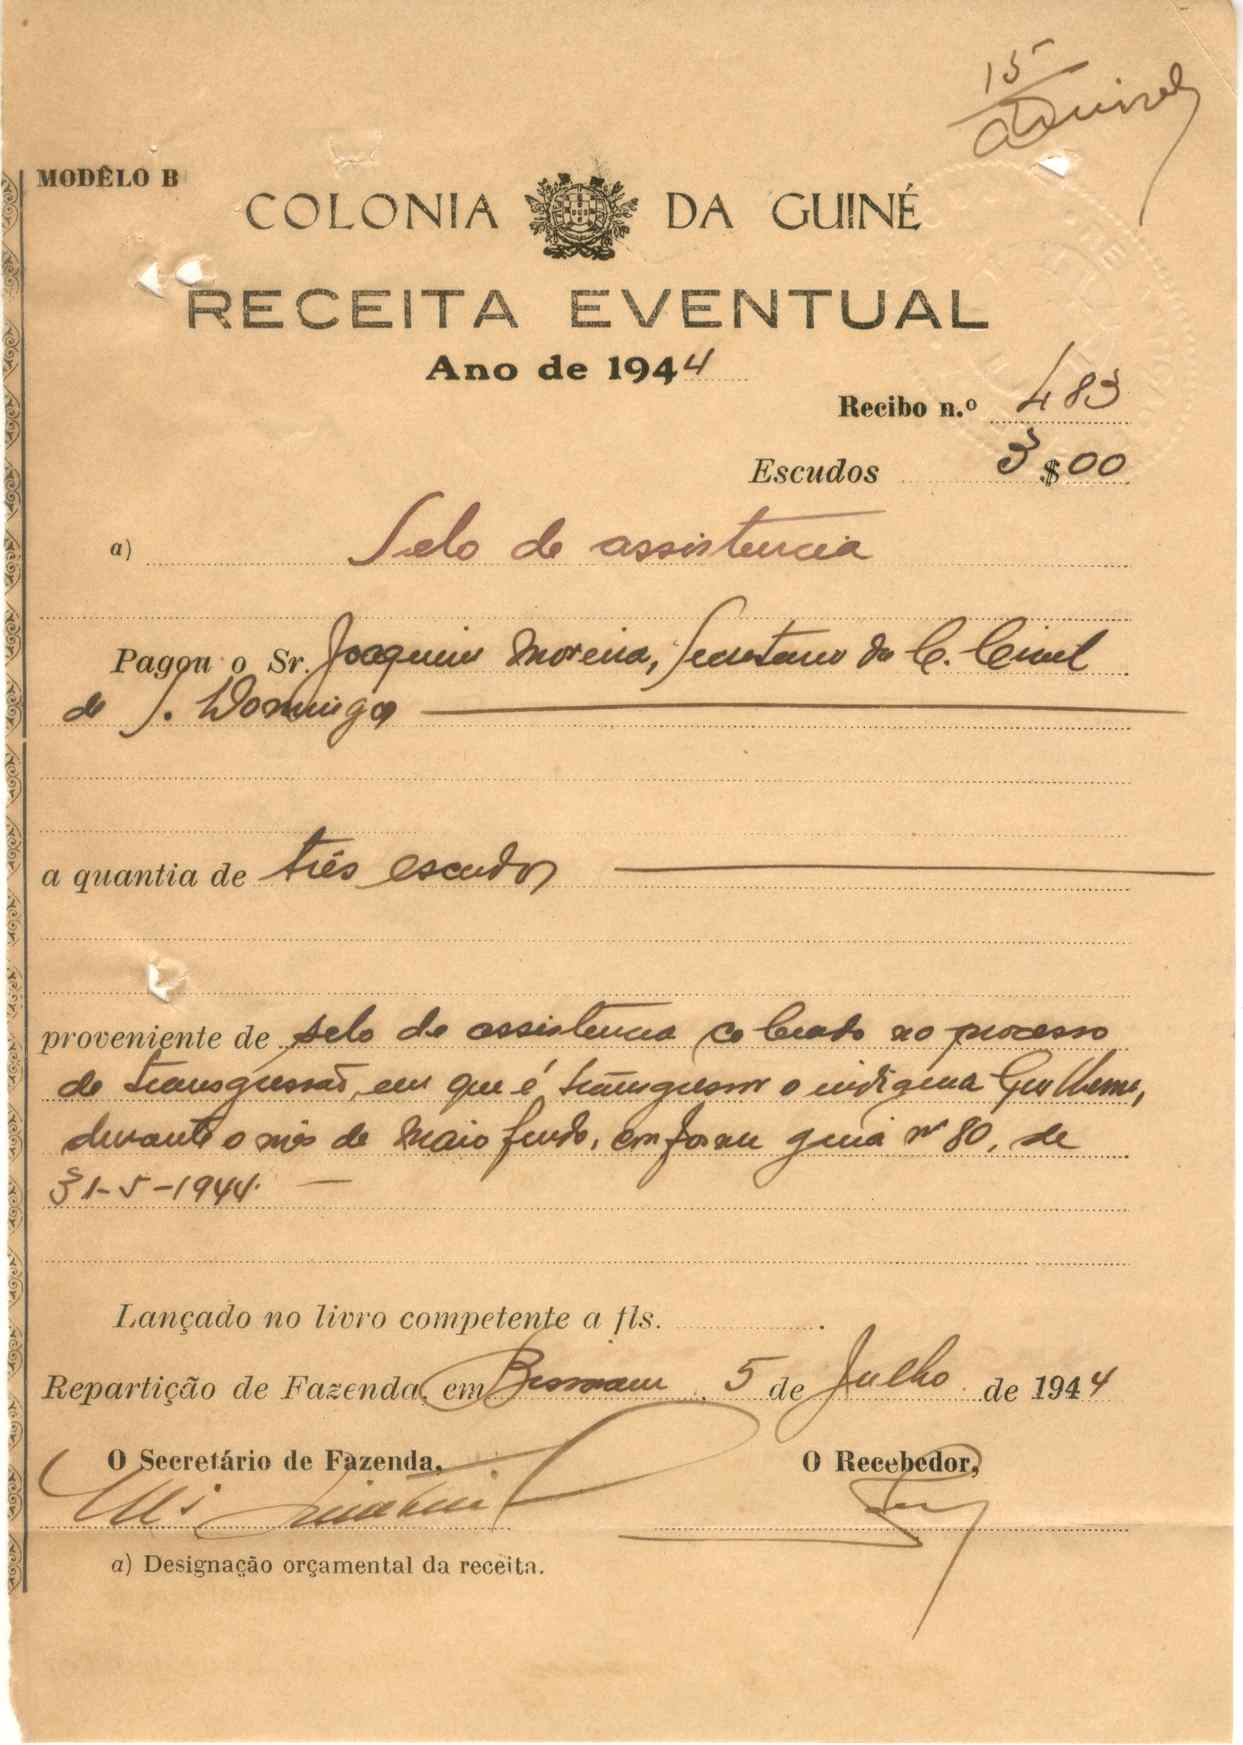 15
MODÊLO B
COLONIA DA GUINÉ
RECEITA EVENTUAL
Ano de 1944
Recibo n.º 483
Escudos 3$00
a) Selo de assistencia
Pagou o Sr. Joaquim Moreira, Secretario da C. Civil
de S. Domingos
a quantia de três escudos
proveniente de selo de assistencia cobrado no processo
de transgressão, em que é transgressor o indigena Guilherme,
durante o mês de Maio findo, conforme guia nº 80, de
31-5-1944.
Lançado no livro competente a fls.
Repartição de Fazenda, em Bissau, 5 de Julho de 1944
O Secretário de Fazenda,
O Recebedor,
a) Designação orçamental da receita.